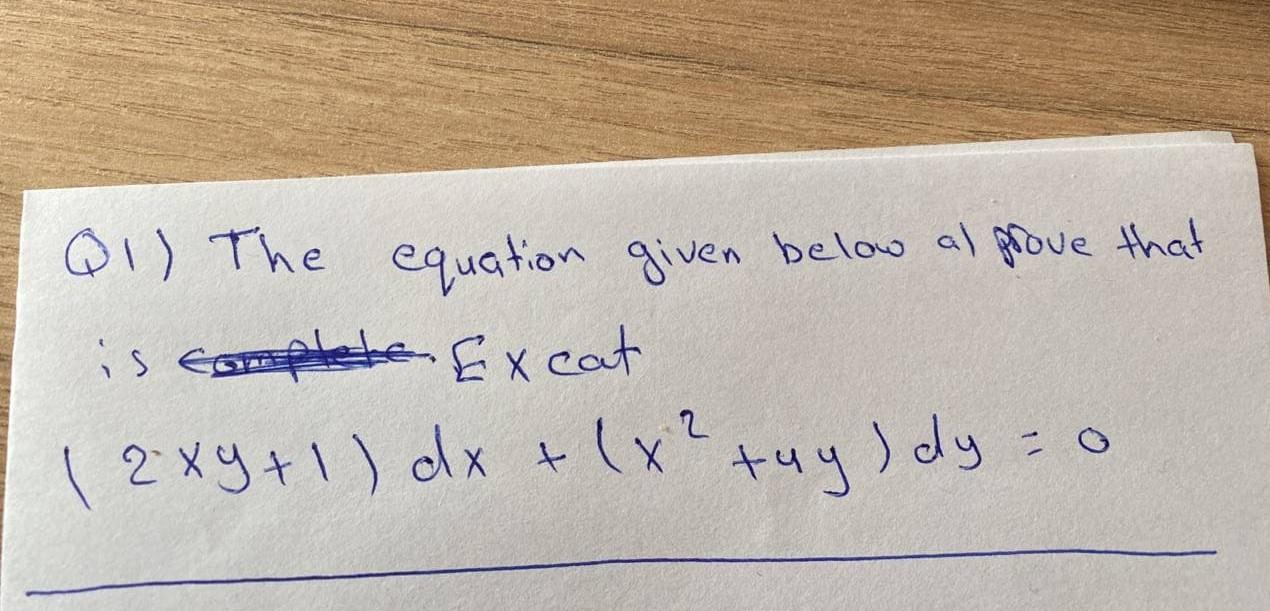 Q1) The equation given below a) prove that
is complete. Excat
(2xy+1) dx + (x² +4y) dy = 0